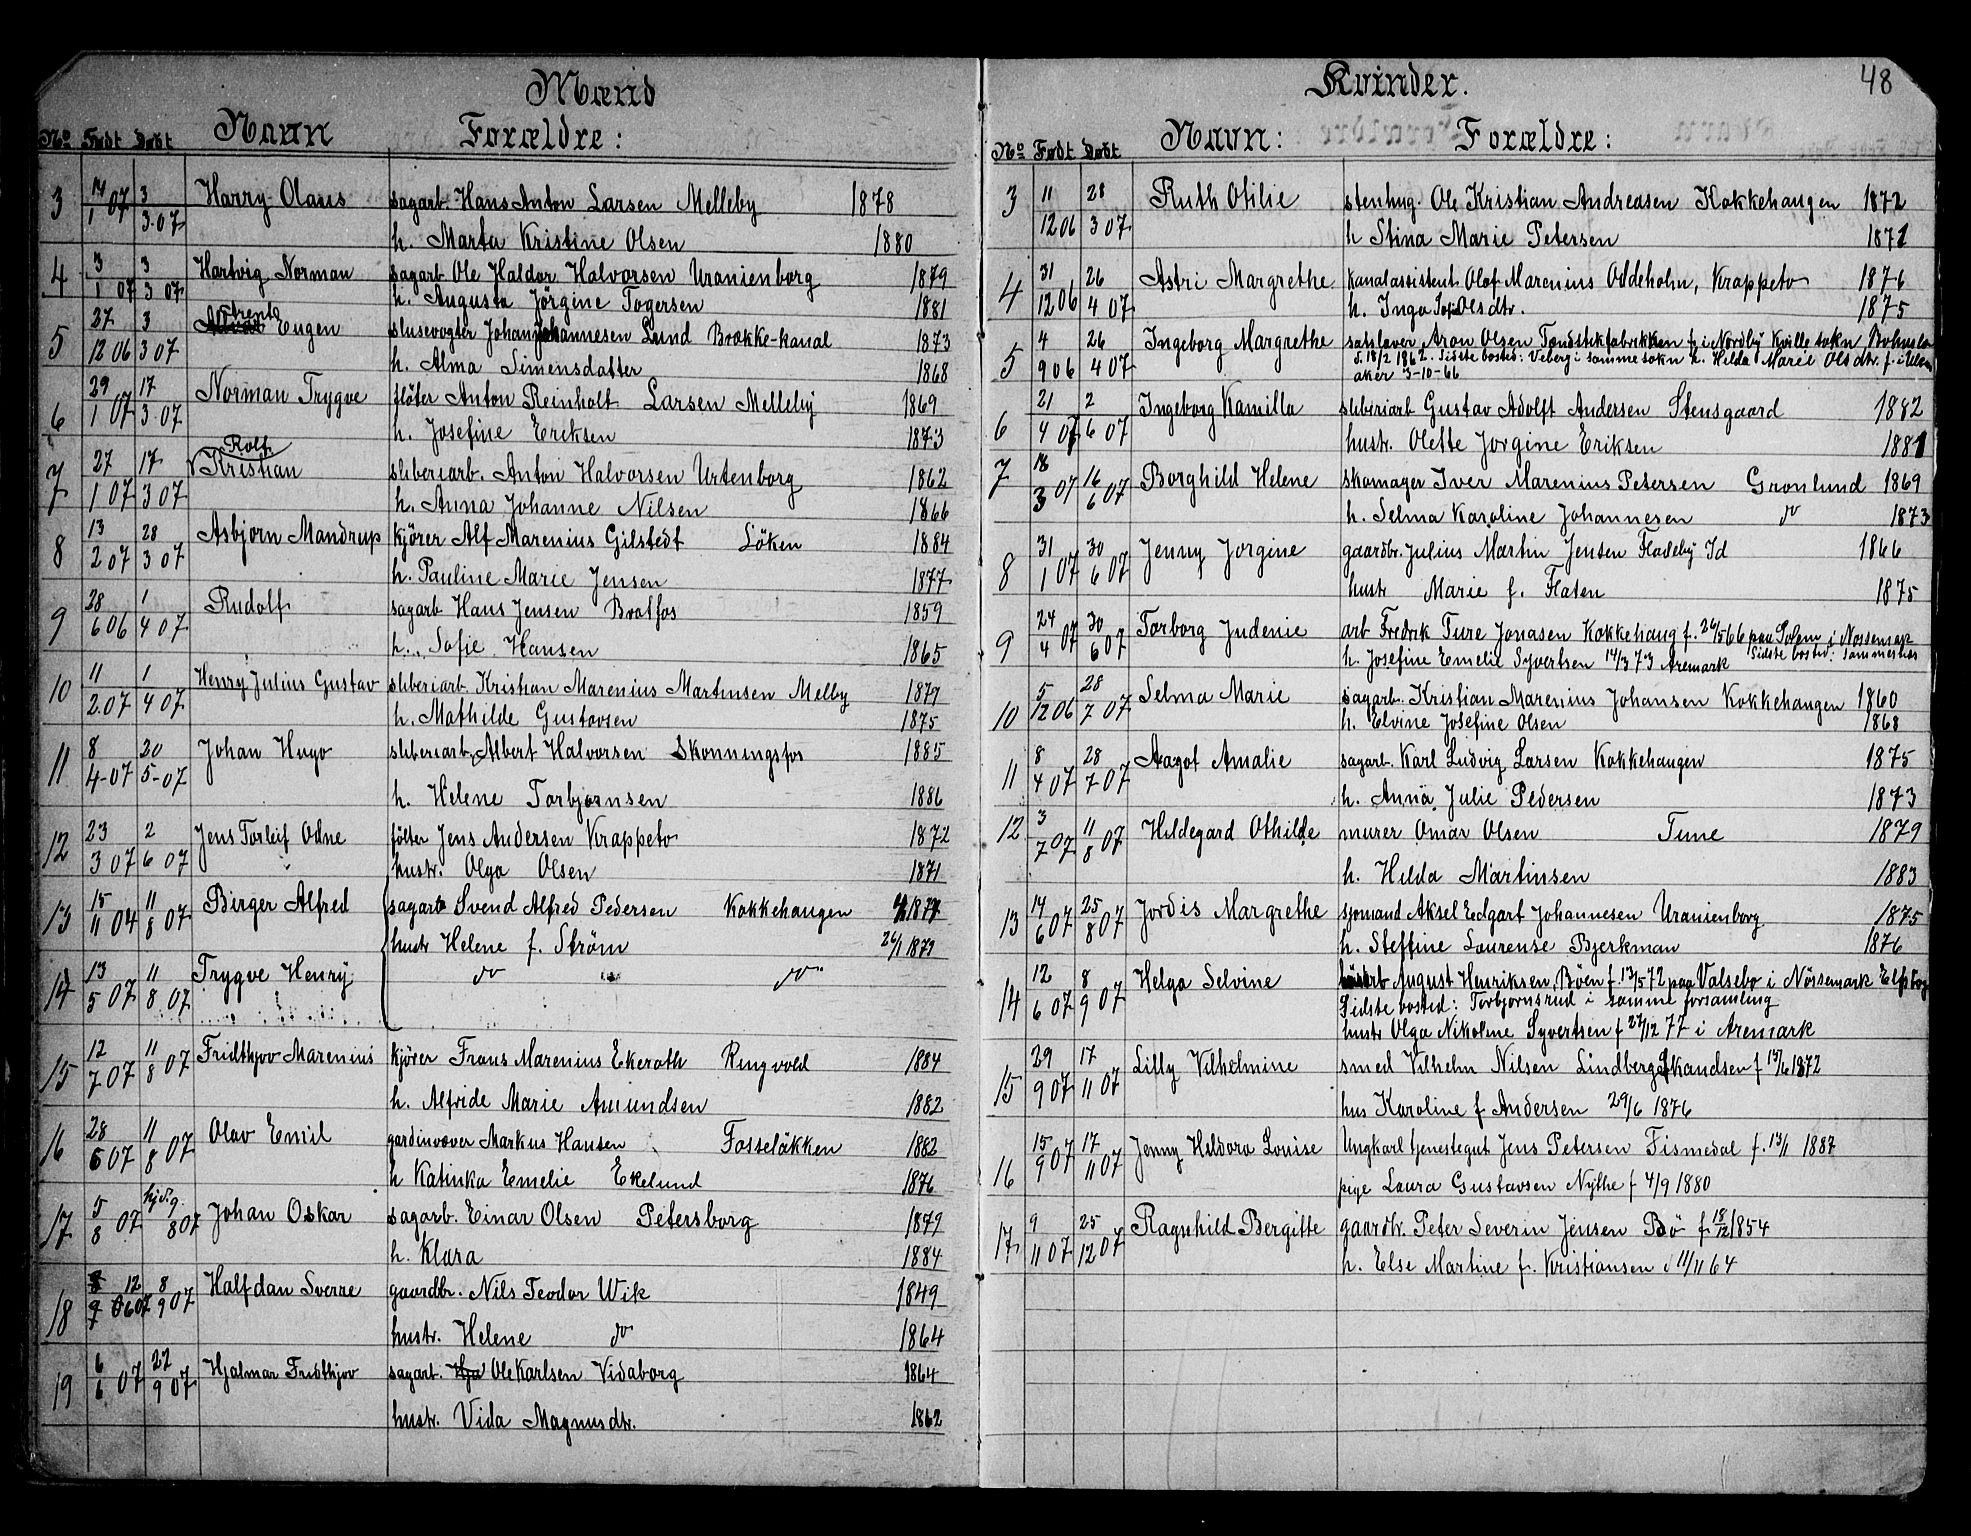 Mænd
No Født Døbt Navn Forældre:
3 14/1 07 3/3-07 Harry Olaus sagarb. Hans Anton Larsen Melleby 1878
h. Marta Kristine Olsen 1880
4 3/1 07 3/3 07 Hartvig Norman sagarb. Ole Haldor Halvorsen Uranienborg 1879
h. Augusta Jörgine Togersen 1881
5 27/12 06 3/3 07 Eugen slusevogter Johan Johannesen Lund Brække-kanal 1873
h. Alma Simensdatter 1868
6 29/1 07 17/3 07 Norman Trygve flöter Anton Reinholt Larsen Melleby 1869
h. Josefine Eriksen 1873
Rolf
7 27/1 07 17/3 07 Kristian sliberiarb. Anton Halvorsen Urtenborg 1862
h. Anna Johanne Nilsen 1866
8 13/2 07 28/3 07 Asbjørn Mandrup kjörer Alf Marenius Gilstedt Löken 1884
h. Pauline Marie Jensen 1877
9 28/6 06 1/4 07 Rudolf sagarb Hans Jensen Bratfos 1859
h. Sofie Hansen 1865
10 11/2 07 1/4 07 Henry Julius Gustav sliberiarb. Kristian Marenius Martinsen Melby 1879
h. Mathilde Gustavsen 1875
11 8/4-07 20/5-07 Johan Hugo sliberiarb. Albert Halvorsen Skonningsfos 1885
h. Helene Torbjørnsen 1886
12 23/3 07 2/6 07 Jens Torleif Odne fölter Jens Andersen Krappeto 1872
hustr. Olga Olsen 1871
13 15/11 04 11/8 07 Birger Alfred sagarb Svend Alfred Pedersen Kokkehaugen 1877
hustr Helene f. Ström 26/1 1879
14 13/5 07 11/8 07 Trygve Henry do do
15 12/7 07 11/8 07 Fridthjov Marenius kjörer Frans Marenius Ekeroth Ringvold 1884
h. Alfride Marie Amundsen 1882
16 28/6 07 11/8 07 Olav Emil gardinvæver Markus Hansen Fosseløkken 1882
h Katinka Emelie Ekelund 1876
17 5/8 07 hjd. 9/8 07 Johan Oskar sagarb. Einar Olsen Petersborg 1879
h. Klara 1884
18 12/6 07 8/9 07 Halfdan Sverre gaardbr. Nils Teodor Wik 1849
hustr. Helene do 1864
19 6/6 07 22/9 07 Hjalmar Fridthjov sagarb. Ole Karlsen Vidaborg 1864
hustr. Vida Magnusdtr. 1862
Kvinder. 48
No Født Døbt Navn: Forældre:
3 11/12 06 28/3 07 Ruth Otilie stenhug. Ole Kristian Andreasen Kokkehaugen 1872
h Stina Marie Petersen 1871
4 31/12 06 26/4 07 Astri Margrethe kanalassistent Olaf Marenius Oddeholm, Krappeto 1876
h. Inga Sofie Olsdtr. 1875
5 4/9 06 26/4 07 Ingeborg Margrethe satsløver Aron Olsen Tændstikfabrikken f. i Nordby Kville sokn Bohuslen
f. 18/2 1862. Sidste bosted: Veberg i samme sokn h. Hilda Marie Olsdtr. f. i
aker 3-10-66
6 21/4 07 2/6 07 Ingeborg Kamilla sliberiarb Gustav Adolft Andersen Stensgaard 1882
hustr. Olette Jorgine Eriksen 1881
7 18/3 07 16/6 07 Borghild Helene skomager Iver Marenius Petersen Grønlund 1869
h. Selma Karoline Johannesen do 1873
8 31/1 07 30/6 07 Jenny Jorgine gaardbr. Julius Martin Jensen Fladeby Id 1866
hustr Marie f. Flaten 1875
9 24/4 07 30/6 07 Torborg Judenie arb Fredrik Ture Jonasen Kokkehaug f. 26/5 66 paa Solem i Nössemark
h. Josefine Emelie Syvertsen 14/3 73 Aremark Sidste bosted: sammesteds
10 5/12 06 28/7 07 Selma Marie sagarb. Kristian Marenius Johansen Kokkehaugen 1860
h. Elvine Josefine Olsen 1868
11 8/4 07 28/7 07 Aagot Amalie sagarb. Karl Ludvig Larsen Kokkehaugen 1875
h. Anna Julie Pedersen 1873
12 3/7 07 11/8 07 Hildegard Othilde murer Omar Olsen Tune 1879
h. Hilda Martinsen 1883
13 14/6 07 25/8 07 Jordis Margrethe sjømand Aksel Eedgart Johannesen Uranienborg 1875
h. Steffine Laurense Bjerkman 1876
14 12/6 07 8/9 07 Helga Selvine August Henriksen, Böen f. 13/5 72 paa Valsebo i Nössemark
Sidste bosted: Torbjørnsrud i samme forsamling
hustr Olga Nikoline Syvertsen f 27/12 77 i Aremark
15 29/9 07 17/11 07 Lilly Vilhelmine smed Vilhelm Nilsen Lindberg Skandsen f 15/6 1872
hus Karoline f Andersen 29/6 1876
16 15/9 07 17/11 07 Jenny Heldora Louise Ungkarl tjenestegut Jens Petersen Fismedal f. 13/1 1887
pige Laura Gustavsen Nythe f 4/9 1880
17 9/11 07 25/12 07 Ragnhild Bergitte gaardbr. Peter Severin Jensen Bö f 18/12 1854
h. Else Martine f. Kristiansen 11/11 64